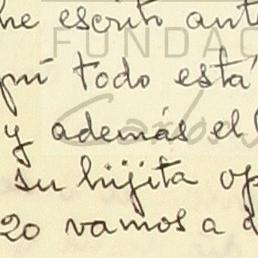 he escrito ant
FUNDAC
todo está
y además el
su hijita op
20 vamos a d